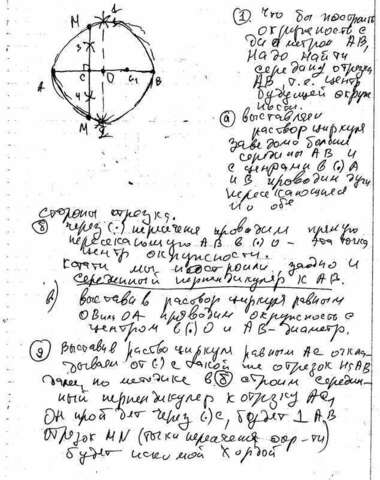 M 1
3
A C O C₁ B
4
M 2
① Что бы построить
окружность с
диаметром AB,
Надо найти
середину отрезка
AB, т.е. центр
будущей окруж
ности.
ⓐ выставляем
раствор циркуля
заведомо больший
середины AB и
с центрами в (.) A
и B проводим дуги
пересекающиеся
по обе
стороны отрезка.
ⓑ через (.) пересечения проводим прямую
пересекающую AB в (.) O - эта точка
центр окружности.
Кстати мы построили заодно и
серединный перпендикуляр к AB.
в) выставив раствор циркуля равным
OB или OA проводим окружность с
центром в (.) O и AB - диаметр.
Выставив раствор циркуля равным AC откла
дываем от (.) C такой же отрезок на AB
далее по методике в ⓑ строим середин-
ный перпендикуляр к отрезку AC₁
Он пройдет через (.) C, будет ⊥ AB
Отрезок MN (точки пересечения окр-ти)
будет искомой хордой